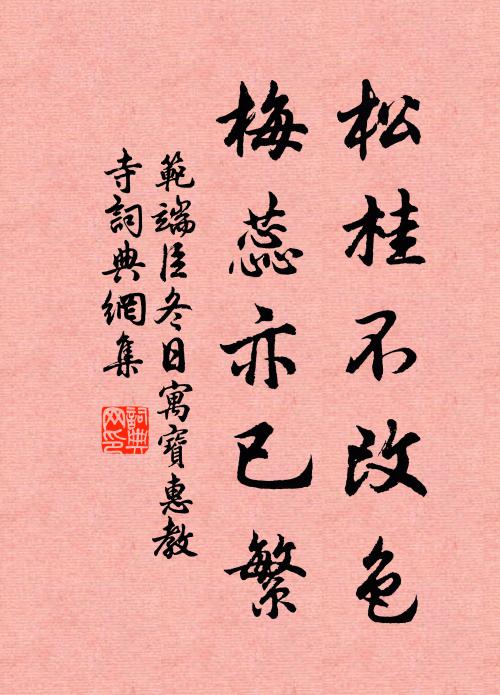 松桂不改色
梅蕊亦已繁
範端臣冬日寓寶惠教
寺詞典網集
詞典
网印